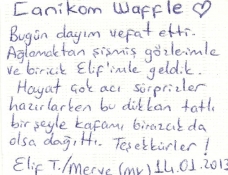 Canikom Waffle ♡
Bugün dayım vefat etti.
Ağlamaktan şişmiş gözlerimle
ve biricik Elif'imle geldik.
Hayat çok acı sürprizler
hazırlarken bu dükkan tatlı
bir şeyle kafamı birazcık da
olsa dağıttı. Teşekkürler!
Elif T./Merve (mv) 14.01.2013